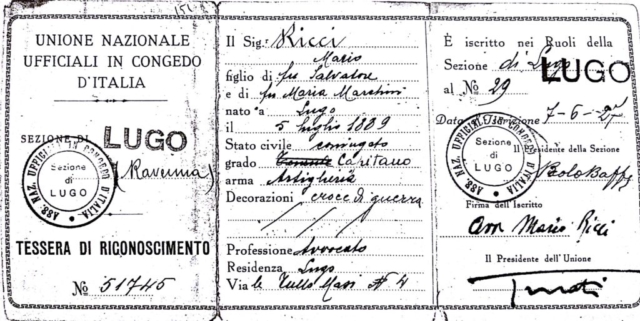 UNIONE NAZIONALE
UFFICIALI IN CONGEDO
D'ITALIA
SEZIONE DI LUGO
(Ravenna)
ASS. NAZ. UFFICIALI IN CONGEDO D'ITALIA
Sezione
di
LUGO
TESSERA DI RICONOSCIMENTO
No 51745
Il Sig. Ricci
Mario
figlio di fu Salvatore
e di fu Maria Marchini
nato a Lugo
il 5 luglio 1889
Stato civile coniugato
grado Capitano
arma Artiglieria
Decorazioni croce di guerra
Professione Avvocato
Residenza Lugo
Via
È iscritto nei Ruoli della
Sezione di Lugo LUGO
al No 29
Data d'iscrizione 7-6-27
Il Presidente della Sezione
ASS. NAZ. UFFICIALI IN CONGEDO D'ITALIA
Sezione
di
LUGO
Firma dell'Iscritto
Avv Mario Ricci
Il Presidente dell'Unione